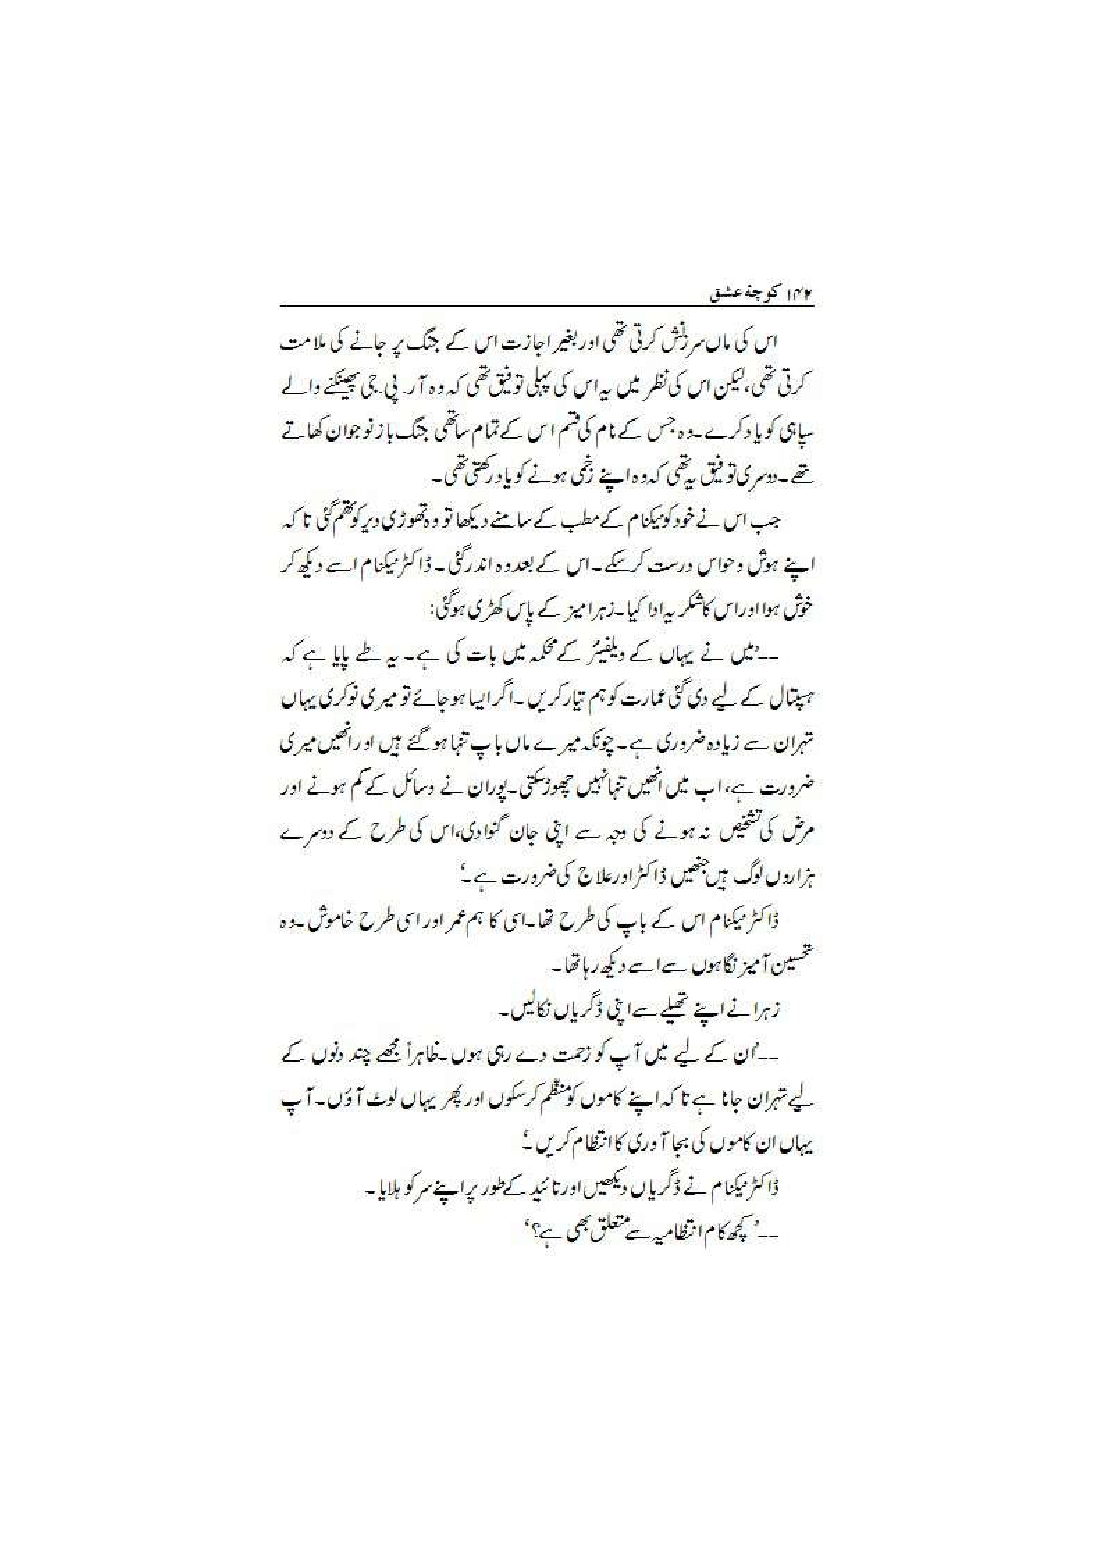 ۱۴۲ کوچۂ عشق
اس کی ماں سرزنش کرتی تھی اور بغیر اجازت اس کے جنگ پر جانے کی ملامت
کرتی تھی، لیکن اس کی نظر میں یہ اس کی پہلی توفیق تھی کہ وہ آر۔ پی۔ جی پھینکنے والے
سپاہی کو یاد کرے۔ وہ جس کے نام کی قسم اس کے تمام ساتھی جنگ باز نوجوان کھاتے
تھے۔ دوسری توفیق یہ تھی کہ وہ اپنے زخمی ہونے کو یاد رکھتی تھی۔
جب اس نے خود کو نیکنام کے مطب کے سامنے دیکھا تو وہ تھوڑی دیر کو تھم گئی تا کہ
اپنے ہوش و حواس درست کر سکے۔ اس کے بعد وہ اندر گئی۔ ڈاکٹر نیکنام اسے دیکھ کر
خوش ہوا اور اس کا شکریہ ادا کیا۔ زہرا میز کے پاس کھڑی ہوگئی:
--’میں نے یہاں کے ویلفیئر کے محکمہ میں بات کی ہے۔ یہ طے پایا ہے کہ
ہسپتال کے لیے دی گئی عمارت کو ہم تیار کریں۔ اگر ایسا ہو جائے تو میری نوکری یہاں
تہران سے زیادہ ضروری ہے۔ چونکہ میرے ماں باپ تنہا ہو گئے ہیں اور انھیں میری
ضرورت ہے، اب میں انھیں تنہا نہیں چھوڑ سکتی۔ پوران نے وسائل کے کم ہونے اور
مرض کی تشخیص نہ ہونے کی وجہ سے اپنی جان گنوا دی، اس کی طرح کے دوسرے
ہزاروں لوگ ہیں جنھیں ڈاکٹر اور علاج کی ضرورت ہے۔‘
ڈاکٹر نیکنام اس کے باپ کی طرح تھا۔ اسی کا ہم عمر اور اسی طرح خاموش۔ وہ
تحسین آمیز نگاہوں سے اسے دیکھ رہا تھا۔
زہرا نے اپنے تھیلے سے اپنی ڈگریاں نکالیں۔
--’ان کے لیے میں آپ کو زحمت دے رہی ہوں۔ ظاہراً مجھے چند دنوں کے
لیے تہران جانا ہے تا کہ اپنے کاموں کو منظم کر سکوں اور پھر یہاں لوٹ آؤں۔ آپ
یہاں ان کاموں کی بجا آوری کا انتظام کریں۔‘
ڈاکٹر نیکنام نے ڈگریاں دیکھیں اور تائید کے طور پر اپنے سر کو ہلایا۔
--’کچھ کام انتظامیہ سے متعلق بھی ہے؟‘